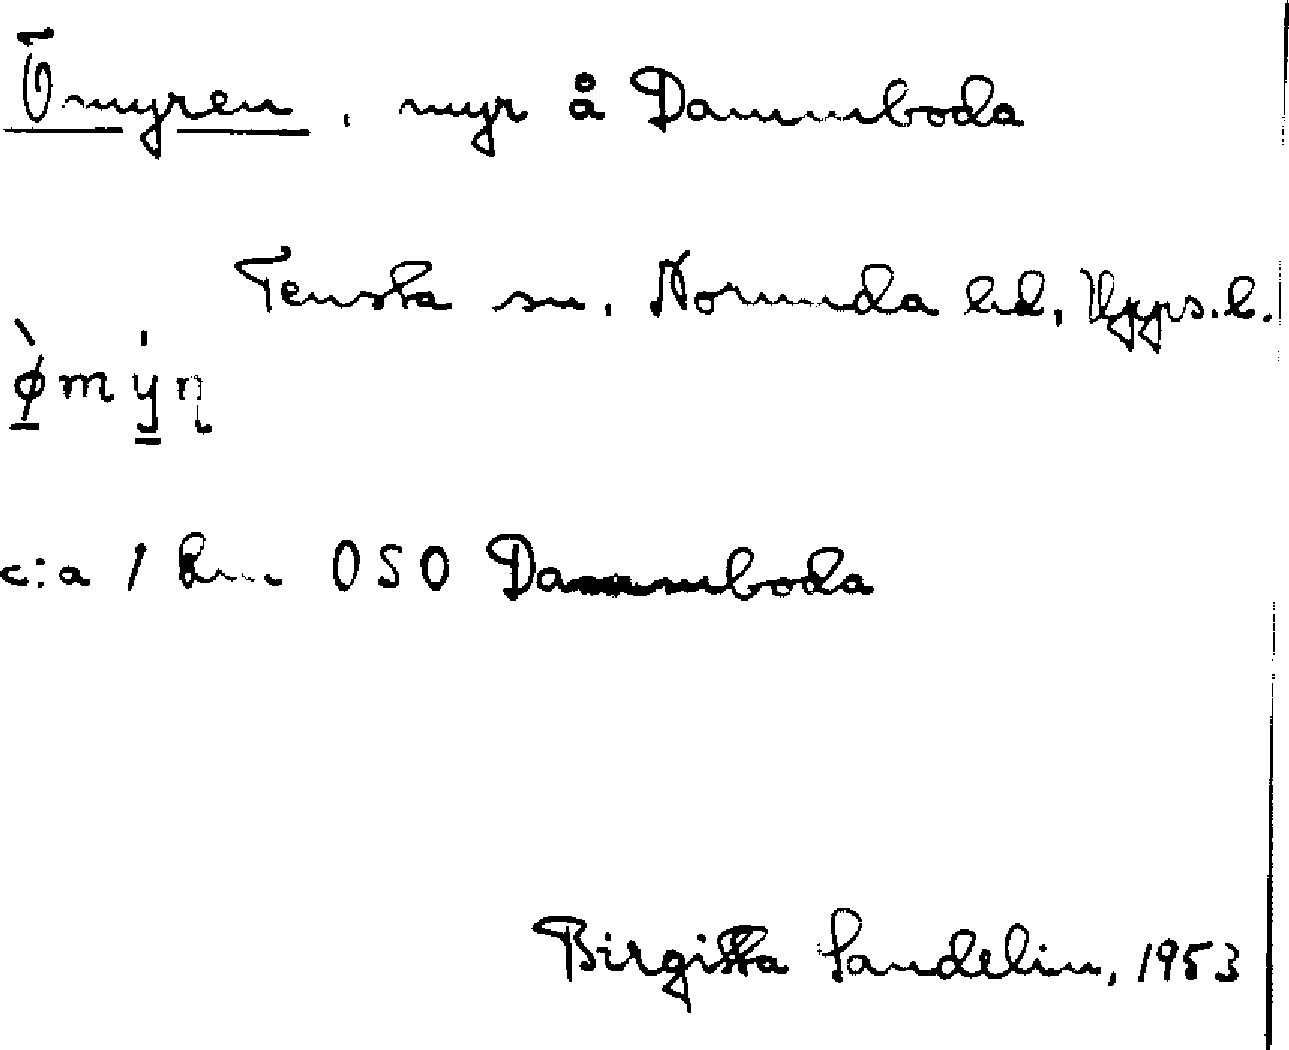 Ömyren, myr å Dammboda
Tensta sn. Norunda hd, Upps.l.
ø̀mýn
c:a 1 km OSO Dammboda
Birgitta Sandelin, 1953